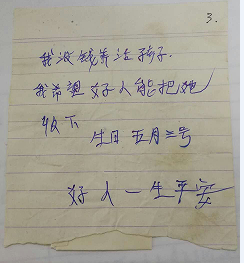 3.
我没钱养活孩子.
我希望好人能把她
收下
生日 五月三号
好人一生平安